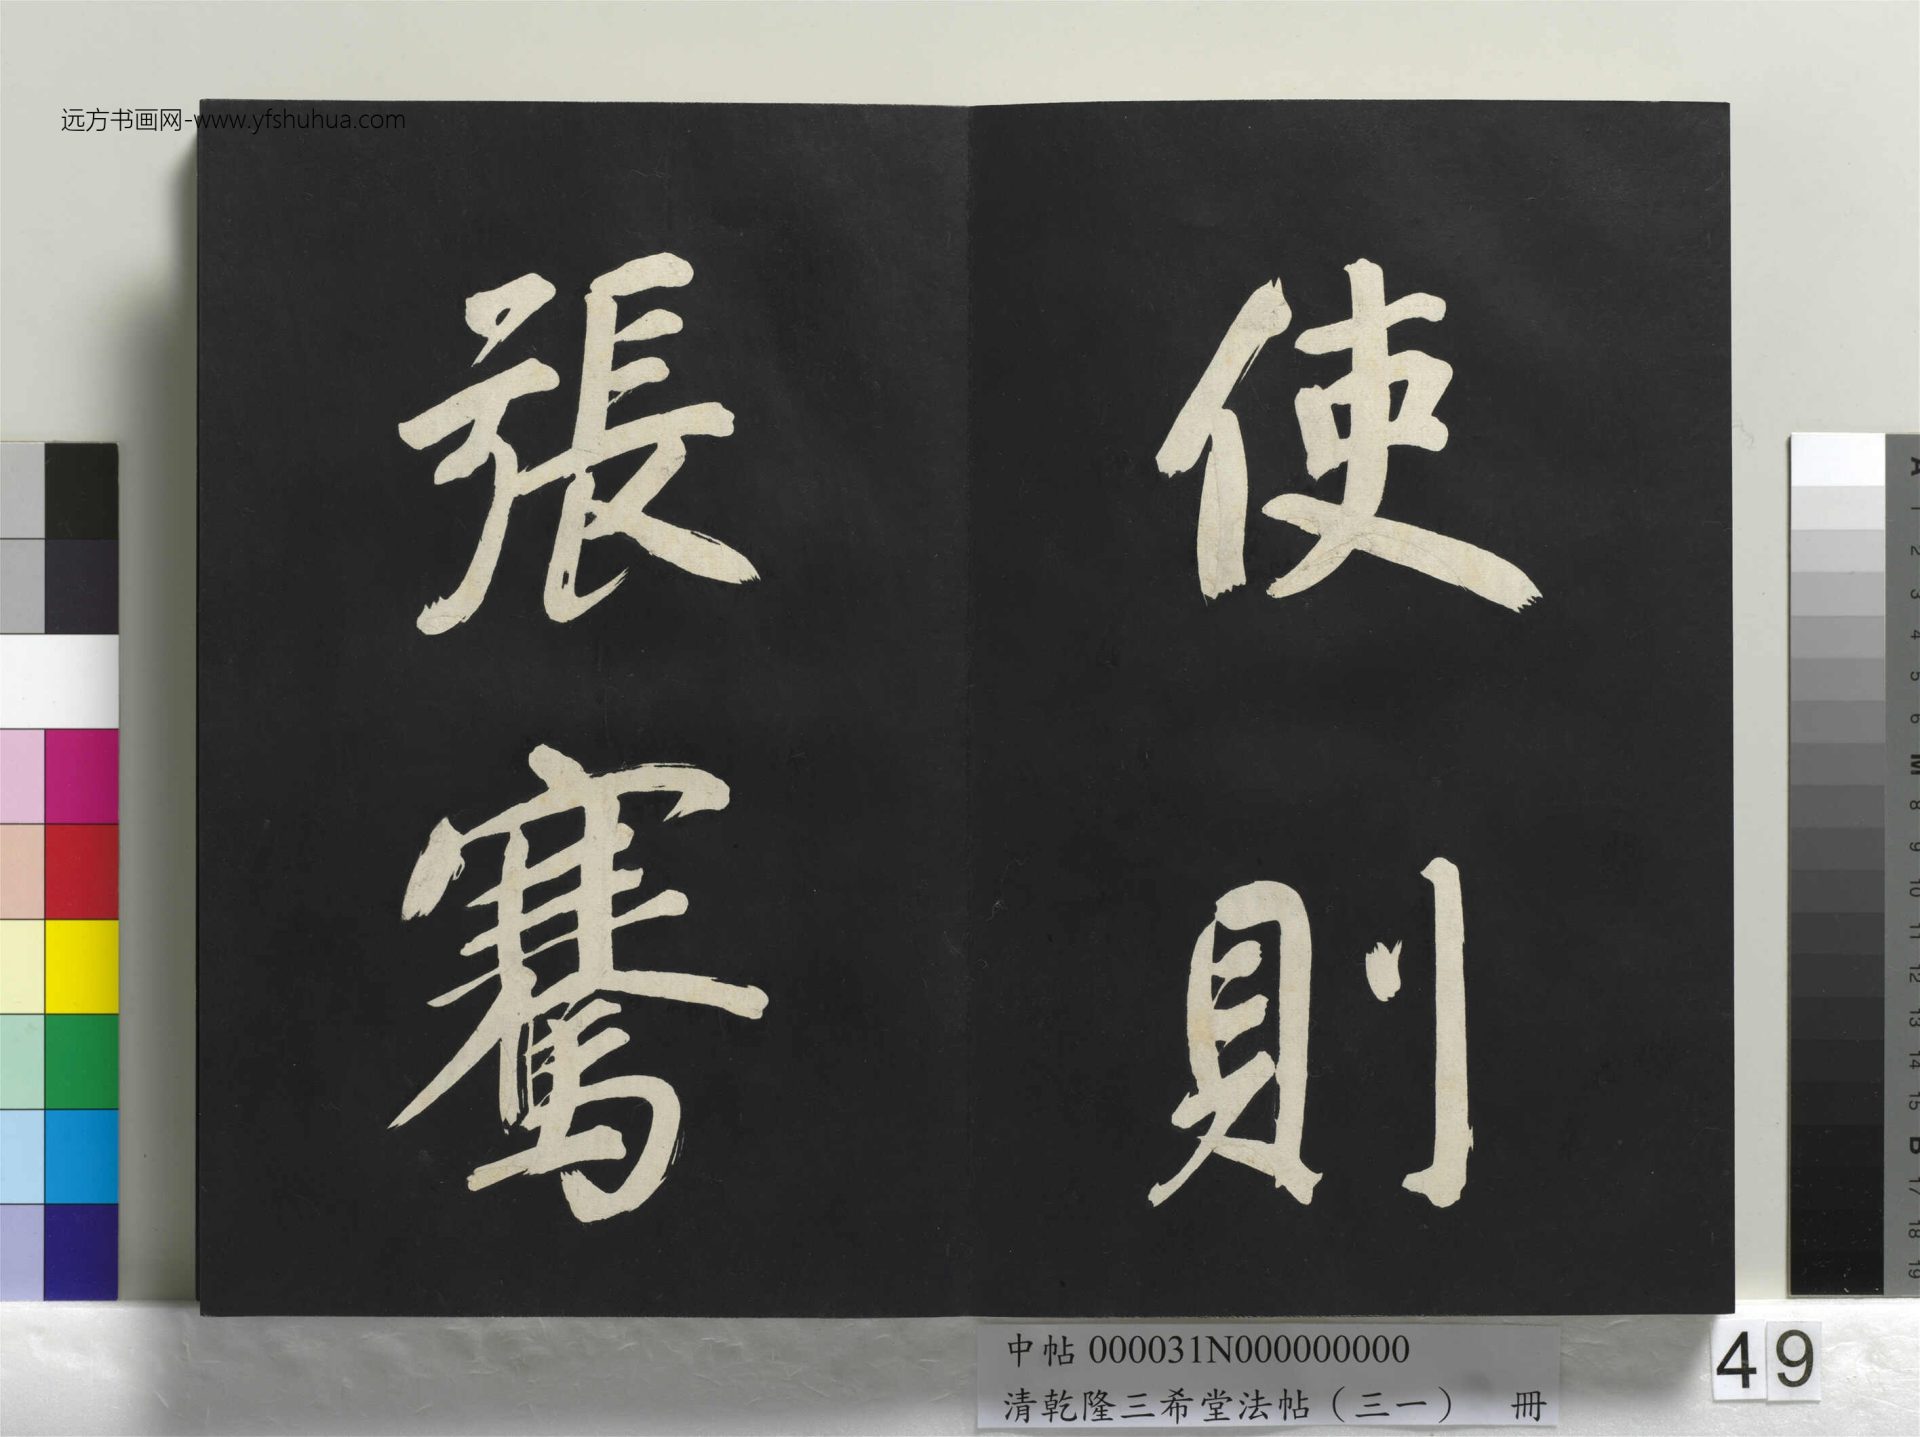 远方书画网-www.yfshuhua.com
使則
張騫
中帖 000031N000000000
清乾隆三希堂法帖（三一） 冊
49
A
1
2
3
4
5
6
M
8
9
10
11
12
13
14
15
B
17
18
19